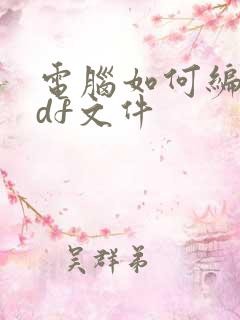 電腦如何編
df文件
吴群弟